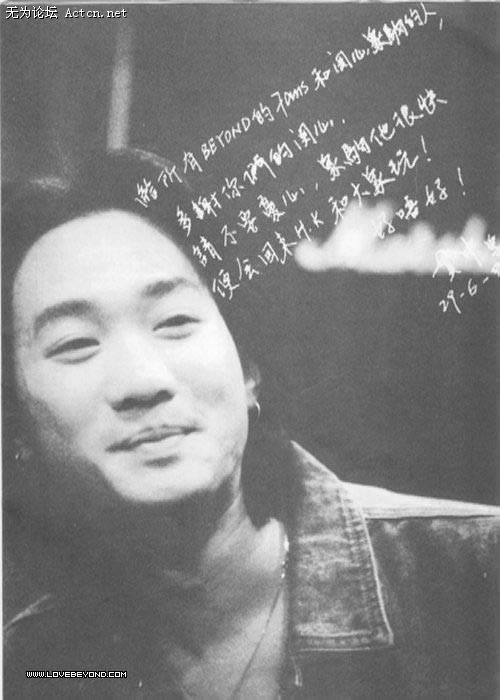 无为论坛 Actcn.net
給所有BEYOND的Fans和関心家駒的人,
多謝你哋的関心,
請不要憂心,家駒他很快
便会回来H.K和大家玩!
好唔好!
29-6-
WWW.LOVEBEYOND.COM